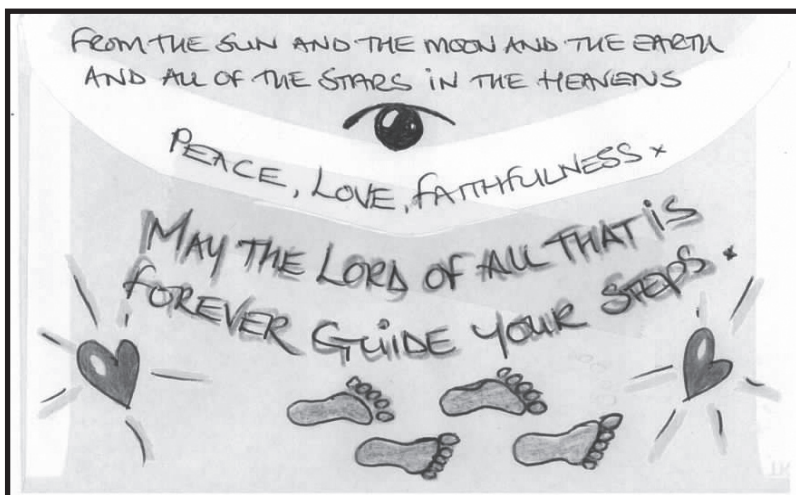 FROM THE SUN AND THE MOON AND THE EARTH
AND ALL OF THE STARS IN THE HEAVENS
PEACE, LOVE, FAITHFULNESS x
MAY THE LORD OF ALL THAT IS
FOREVER GUIDE YOUR STEPS. x